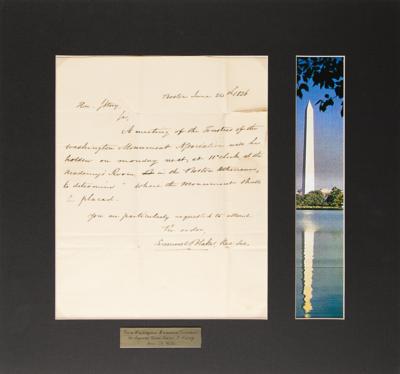 Boston June 24th 1826
Hon.
Sir,
A meeting of the Trustees of the
Washington Monument Association will be
holden on monday next, at 11 o'clock at the
Academy's Room in the Boston Athenaeum,
to determine where the Monument shall
be placed.
You are particularly requested to attend
Per order
Samuel